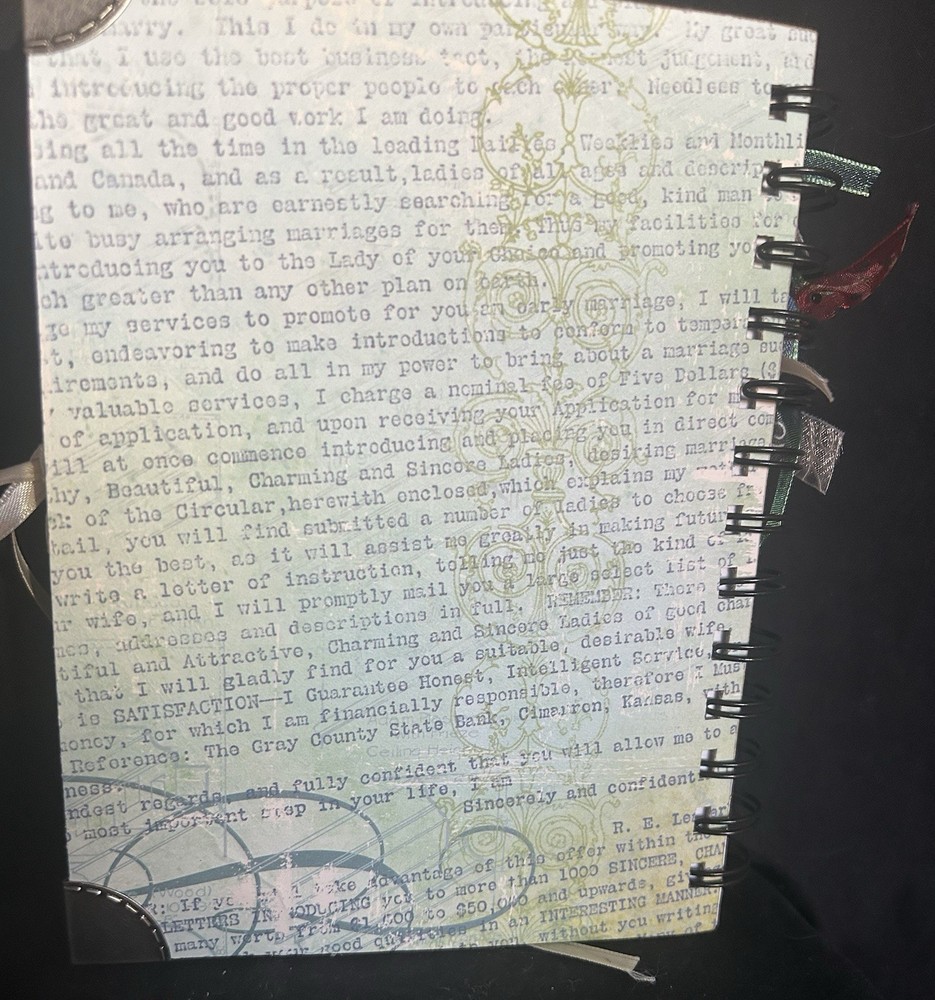 This I do in my own My great
that I use the best business tact, the judgement, and
introducing the proper people to each other. Needless to
the great and good work I am doing.
all the time in the leading Dailies, Weeklies and Monthli
and Canada, and as a result, ladies of all ages and descrip
to me, who are earnestly searching for a good, kind man
busy arranging marriages for them. Thus my facilities for
troducing you to the Lady of your Choice and promoting yo
ch greater than any other plan on earth.
ge my services to promote for you an early marriage, I will ta
t, endeavoring to make introductions to conform to temper
irements, and do all in my power to bring about a marriage su
valuable services, I charge a nominal fee of Five Dollars ($
of application, and upon receiving your Application for m
ill at once commence introducing and placing you in direct com
hy, Beautiful, Charming and Sincere Ladies, desiring marriage
of the Circular, herewith enclosed, which explains my
tail, you will find submitted a number of ladies to choose fr
you the best, as it will assist me greatly in making futur
write a letter of instruction, telling me just the kind of
r wife, and I will promptly mail you a large select list of
mes, addresses and descriptions in full. REMEMBER: There
tiful and Attractive, Charming and Sincere Ladies of good char
that I will gladly find for you a suitable, desirable wife
is SATISFACTION—I Guarantee Honest, Intelligent Service,
money, for which I am financially responsible, therefore I Mus
Reference: The Gray County State Bank, Cimarron, Kansas, with
ness.
Ceiling Heig
ndest regards, and fully confident that you will allow me to a
most important step in your life, I am
Sincerely and confident
R. E.
Wood)
: If take advantage of this offer within the
LETTERS INTRODUCING you to more than 1000 SINCERE, CHA
many worth from $1,000 to $50,000 and upwards, gi
your good qualities in an INTERESTING MANNER.
to you, without you writing